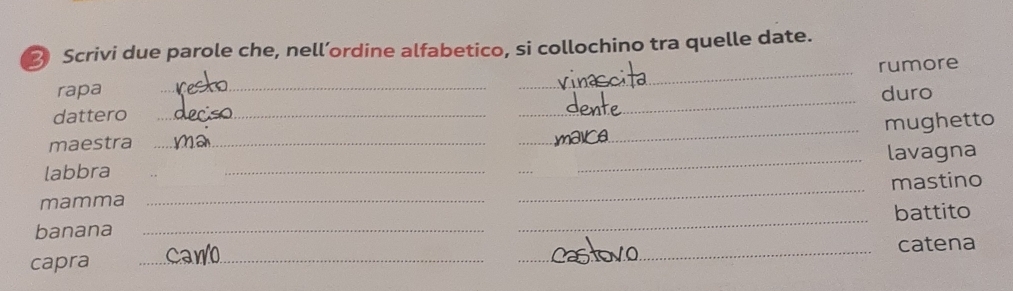 3 Scrivi due parole che, nell'ordine alfabetico, si collochino tra quelle date.
rapa resto rinascita rumore
dattero deciso dente duro
maestra mai marca mughetto
labbra lavagna
mamma mastino
banana battito
capra carro castoro catena